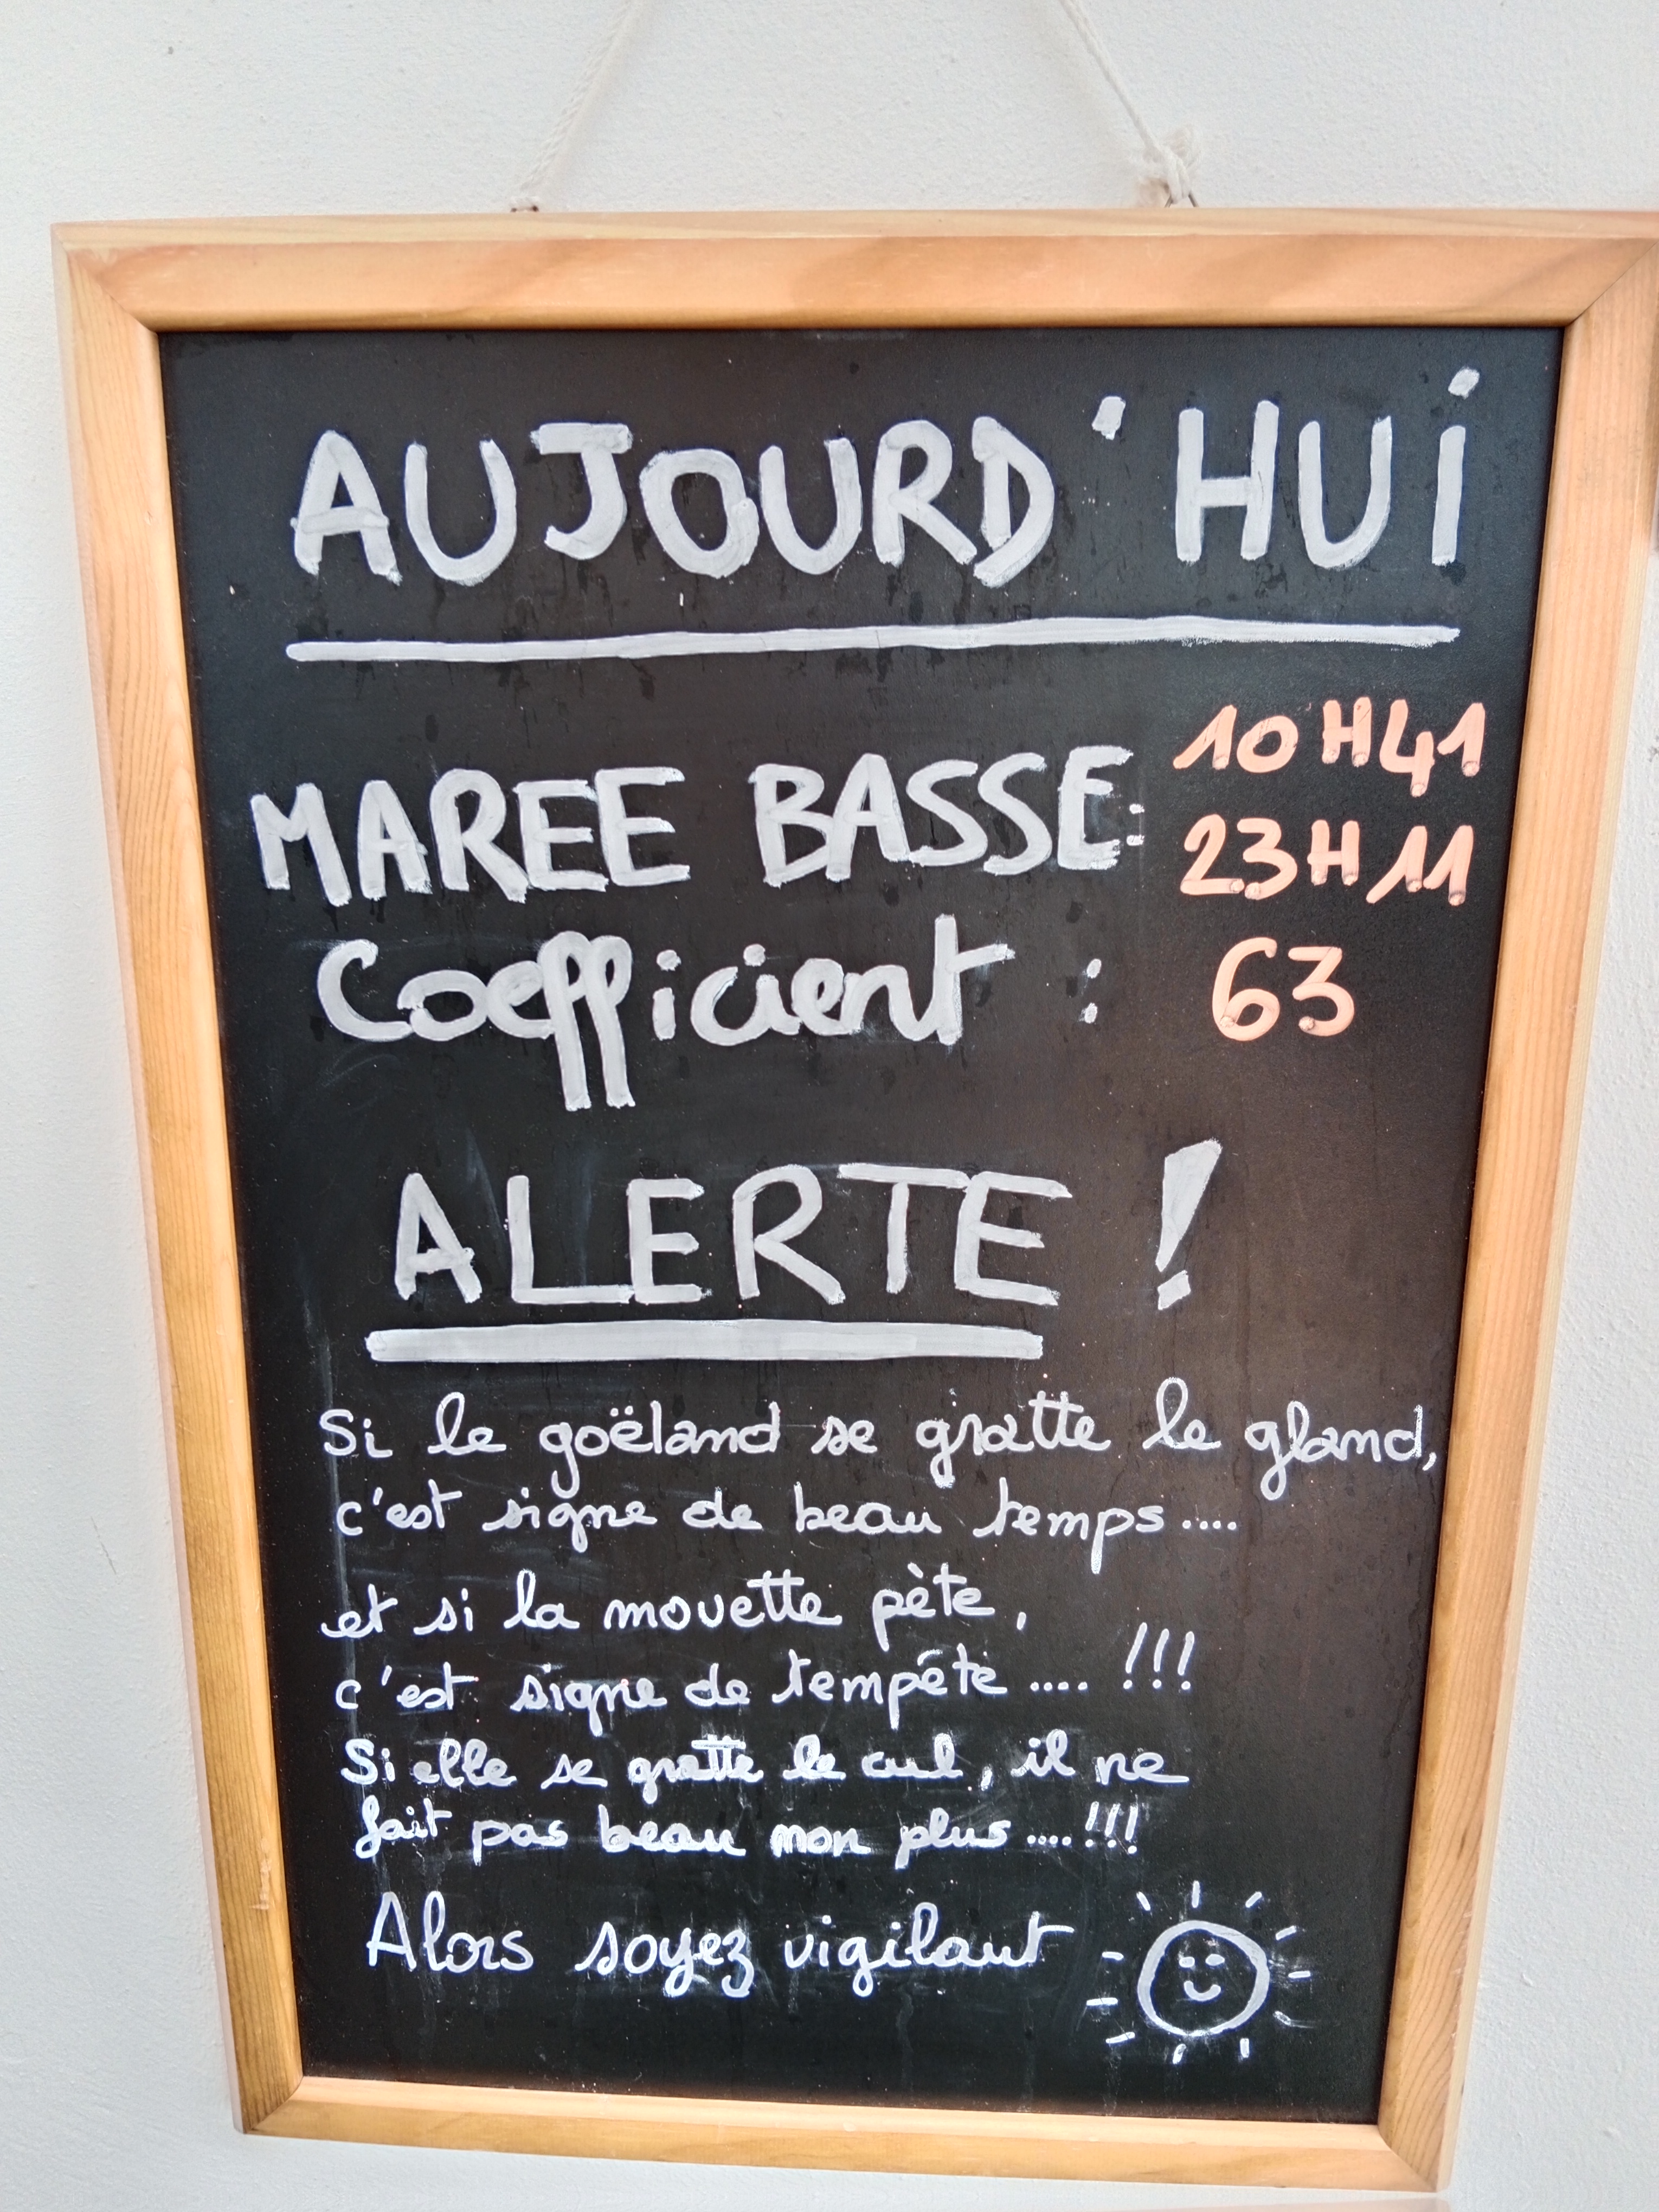 AUJOURD'HUi
10H41
MAREE BASSE:
23H11
Coefficient : 63
ALERTE !
Si le goëland se gratte le gland,
c'est signe de beau temps....
et si la mouette pète,
c'est signe de tempête.... !!!
Si elle se gratte le cul, il ne
fait pas beau non plus....!!!
Alors soyez vigilant